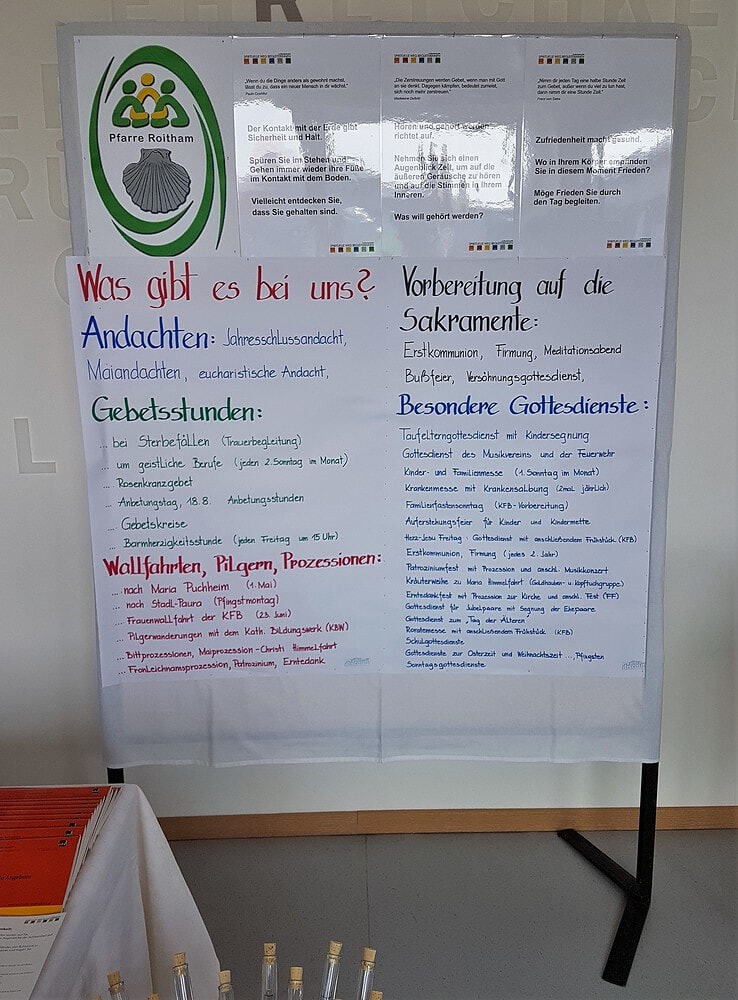 Pfarre Roitham
SPIRITUELLE WEG-BEGLEITER*INNEN
„Wenn du die Dinge anders als gewohnt machst,
lässt du zu, dass ein neuer Mensch in dir wächst.“
Paulo Coehlho
Der Kontakt mit der Erde gibt
Sicherheit und Halt.
Spüren Sie im Stehen und
Gehen immer wieder ihre Füße
im Kontakt mit dem Boden.
Vielleicht entdecken Sie,
dass Sie gehalten sind.
„Die Zerstreuungen werden Gebet, wenn man mit Gott
an sie denkt. Dagegen kämpfen, bedeutet zumeist,
sich noch mehr zerstreuen.“
Madeleine Delbrêl
Hören und gehört werden
richtet auf.
Nehmen Sie sich einen
Augenblick Zeit, um auf die
äußeren Geräusche zu hören
und auf die Stimmen in Ihrem
Inneren.
Was will gehört werden?
„Nimm dir jeden Tag eine halbe Stunde Zeit
zum Gebet, außer wenn du viel zu tun hast,
dann nimm dir eine Stunde Zeit.“
Franz von Sales
Zufriedenheit macht gesund.
Wo in Ihrem Körper empfinden
Sie in diesem Moment Frieden?
Möge Frieden Sie durch
den Tag begleiten.
Was gibt es bei uns?
Andachten: Jahresschlussandacht,
Maiandachten, eucharistische Andacht,
Gebetsstunden:
... bei Sterbefällen (Trauerbegleitung)
... um geistliche Berufe (jeden 2. Sonntag im Monat)
... Rosenkranzgebet
... Anbetungstag, 18.8. Anbetungsstunden
... Gebetskreise
... Barmherzigkeitsstunde (jeden Freitag um 15 Uhr)
Wallfahrten, Pilgern, Prozessionen:
... nach Maria Puchheim (1. Mai)
... nach Stadl-Paura (Pfingstmontag)
... Frauenwallfahrt der KFB (23. Juni)
... Pilgerwanderungen mit dem Kath. Bildungswerk (KBW)
... Bittprozessionen, Maiprozession - Christi Himmelfahrt
... Fronleichnamsprozession, Patrozinium, Erntedank
Vorbereitung auf die
Sakramente:
Erstkommunion, Firmung, Meditationsabend
Bußfeier, Versöhnungsgottesdienst,
Besondere Gottesdienste:
Taufelterngottesdienst mit Kindersegnung
Gottesdienst des Musikvereins und der Feuerwehr
Kinder- und Familienmesse (1. Sonntag im Monat)
Krankenmesse mit Krankensalbung (2mal jährlich)
Familienfastensonntag (KFB-Vorbereitung)
Auferstehungsfeier für Kinder und Kindermette
Herz-Jesu Freitag - Gottesdienst mit anschließendem Frühstück (KFB)
Erstkommunion, Firmung (jedes 2. Jahr)
Patroziniumfest mit Prozession und anschl. Musikkonzert
Kräuterweihe zu Maria Himmelfahrt (Goldhauben- u. Kopftuchgruppe)
Erntedankfest mit Prozession zur Kirche und anschl. Fest (FF)
Gottesdienst für Jubelpaare mit Segnung der Ehepaare
Gottesdienst zum „Tag der Älteren“
Roratemesse mit anschließendem Frühstück (KFB)
Schulgottesdienste
Gottesdienste zur Osterzeit und Weihnachtszeit ..., Pfingsten
Sonntagsgottesdienste